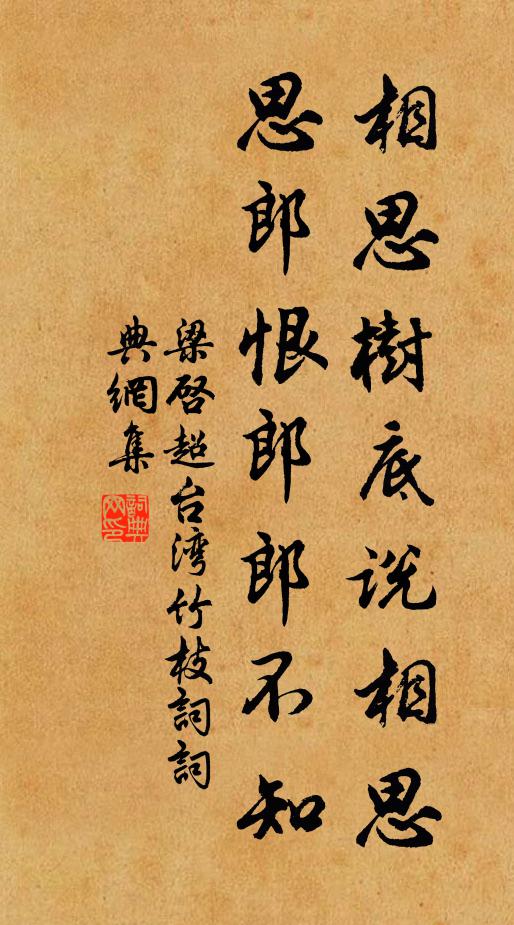 相思樹底説相思
思郎恨郎郎不知
梁啓超台灣竹枝詞詞
典網集
詞典
网印